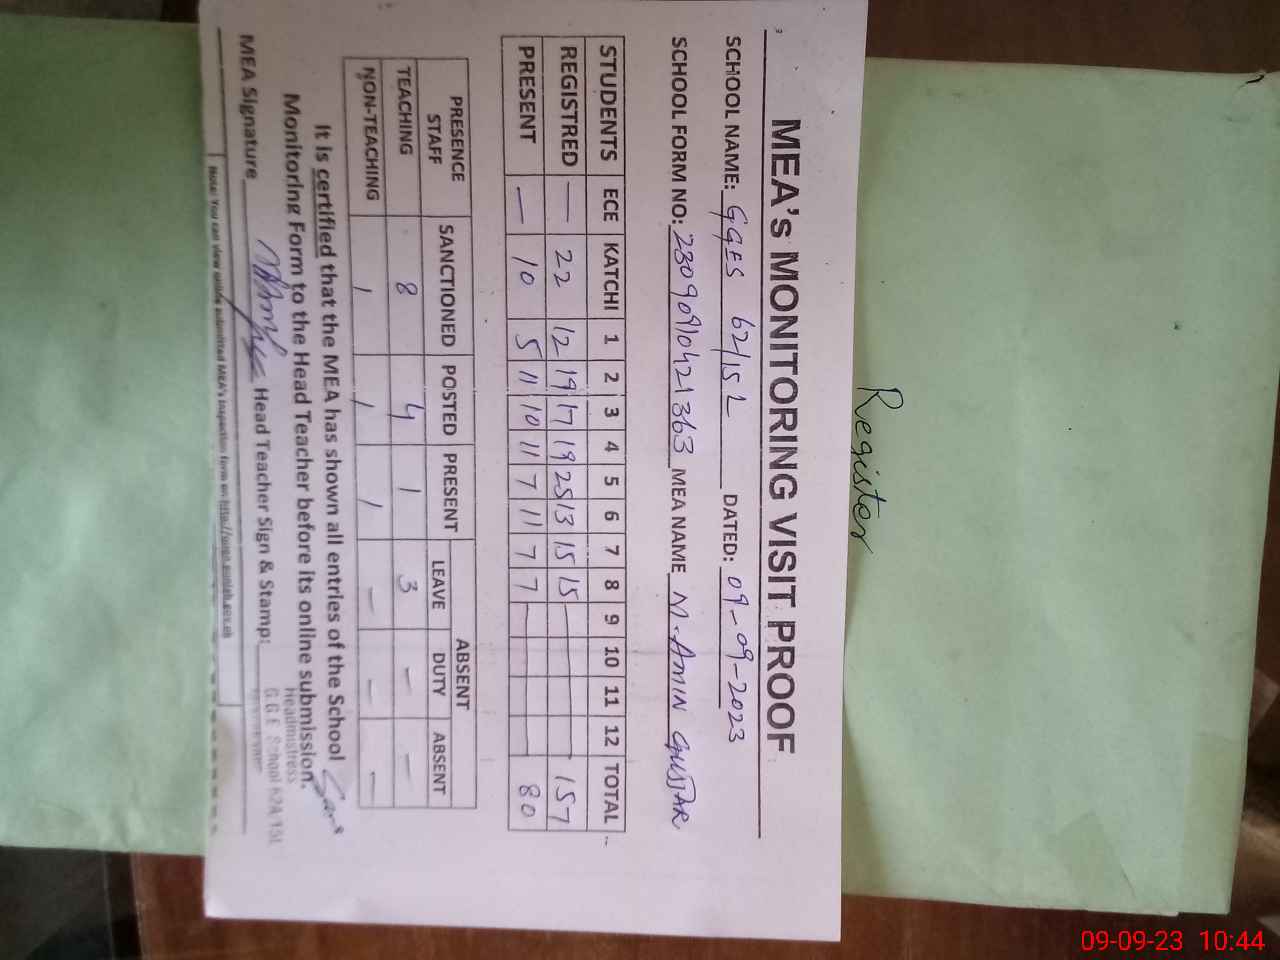 MEA's MONITORING VISIT PROOF
SCHOOL NAME: GGES 62/15 L DATED: 09-09-2023
SCHOOL FORM NO: 23090910421363 MEA NAME M. AMIN GUJJAR
STUDENTS ECE KATCHI 1 2 3 4 5 6 7 8 9 10 11 12 TOTAL
REGISTRED — 22 12 19 17 19 25 13 15 15 — 157
PRESENT — 10 5 11 10 11 7 11 7 7 — 80
PRESENCE STAFF SANCTIONED POSTED PRESENT ABSENT
LEAVE DUTY ABSENT
TEACHING 8 4 1 3 — —
NON-TEACHING 1 1 1 — — —
It is certified that the MEA has shown all entries of the School
Monitoring Form to the Head Teacher before its online submission.
MEA Signature Head Teacher Sign & Stamp:
Headmistress
G.G.E. School 62/15L
Note: You can view online submitted MEA's inspection form on
Register
09-09-23 10:44